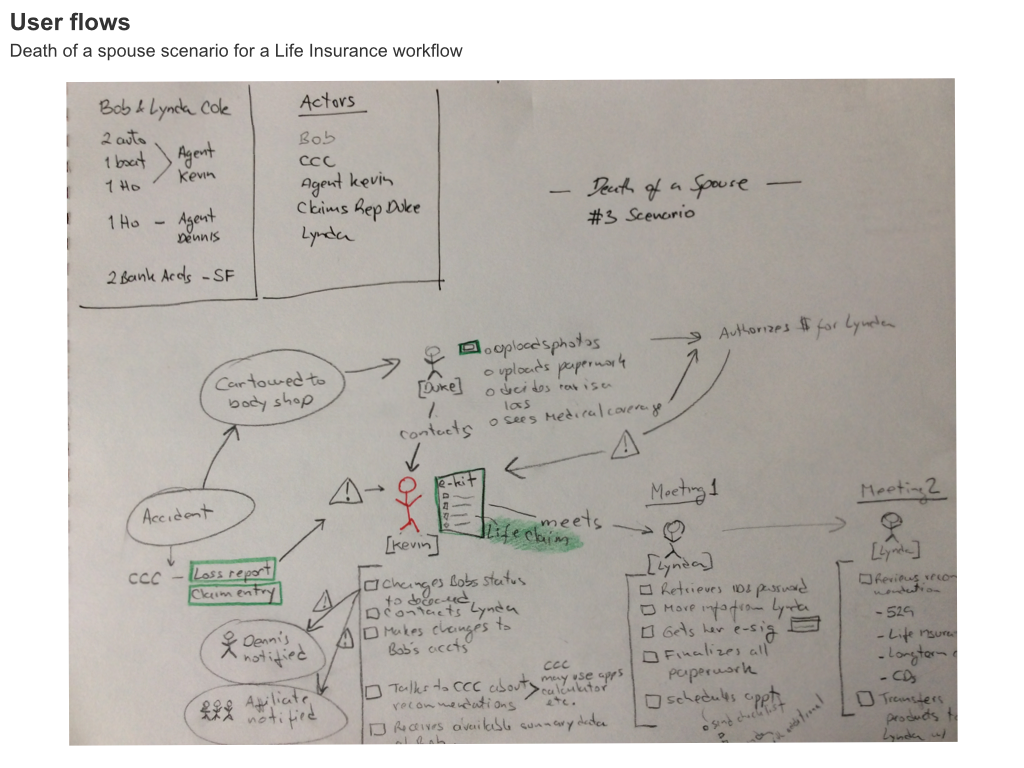 User flows
Death of a spouse scenario for a Life Insurance workflow
Bob & Lynda Cole
2 auto
1 boat
1 Ho
Agent
Kevin
1 Ho - Agent
Dennis
2 Bank Accts - SF
Actors
Bob
CCC
Agent Kevin
Claims Rep Duke
Lynda
— Death of a Spouse —
#3 Scenario
Car towed to
body shop
[Duke]
o uploads photos
o uploads paperwork
o decides car is a
loss
o sees Medical coverage
Authorizes $ for Lynda
contacts
Accident
CCC -
Loss report
Claim entry
[Kevin]
e-kit
Life Claim
meets
Meeting 1
[Lynda]
Meeting 2
[Lynda]
Dennis
notified
Affiliate
notified
Changes Bobs status
to deceased
Contacts Lynda
Makes changes to
Bob's accts
Talks to CCC about
recommendations
CCC
may use apps
calculator
etc.
Receives available summary data
Retrieves password
More info from Lynda
Gets her e-sig
Finalizes all
paperwork
Schedules appt
o send checklist
- 529
- Life
- Longterm
- CDs
Transfers
products to
Lynda w/